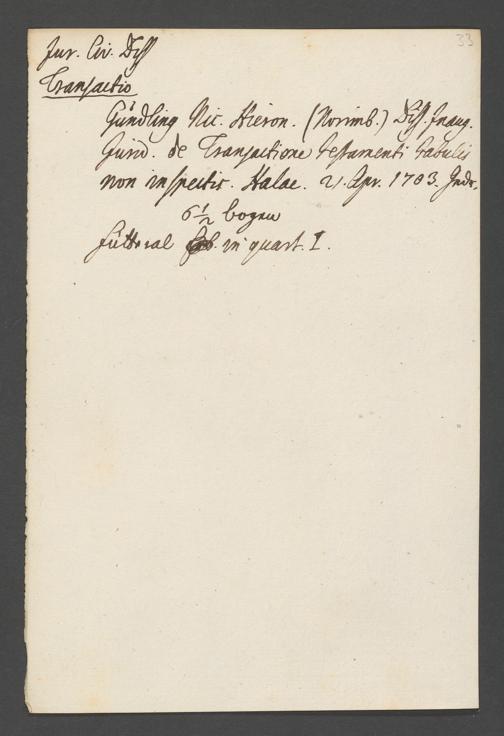 33
Jur. Civ. Diss
Transactio
Gündling Nic. Hieron. (Norimb.) Diss. Inaug.
Jurid. de Transactione testamenti tabulis
non inspectis. Halae. 21. Apr. 1703.
6 1/2 bogen
Futteral in quart. I.